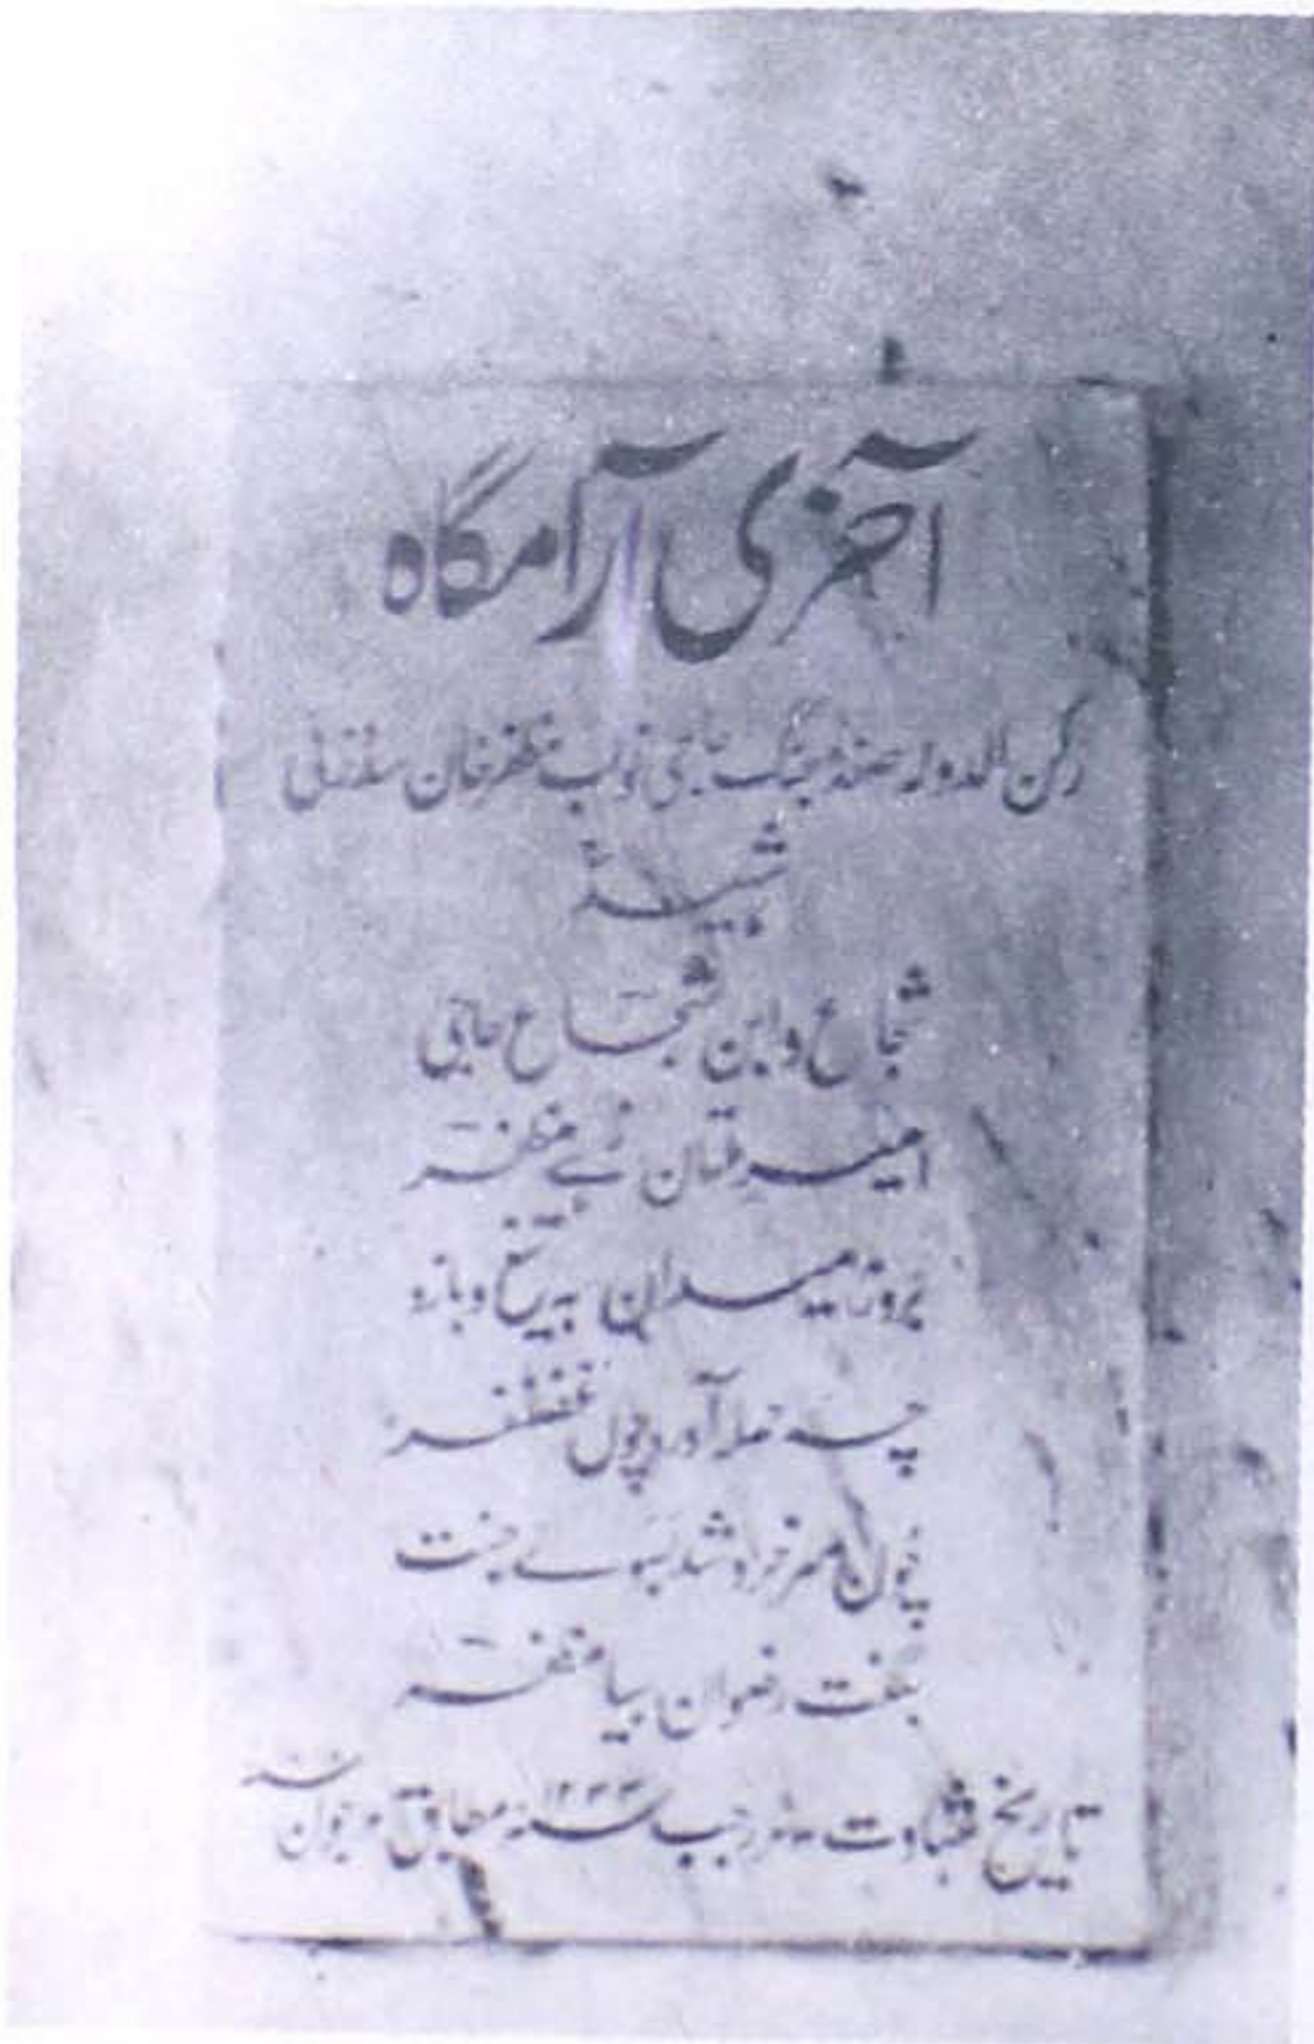 آخری آرامگاہ
رکن الدولہ صفدر جنگ حاجی نواب مظفر خان سدوزئی
شہیدؒ
شجاع و ابن شجاع حاجی
امیر ملتان زہے مظفر
بروز میدان بہ تیغ و بازو
چہ حملہ آورد چوں غضنفر
چوں سرخرو شد بسوئے جنت
بگفت رضوان بیا مظفر
تاریخ شہادت رجب ۱۲۳۳ سنہ مطابق جون